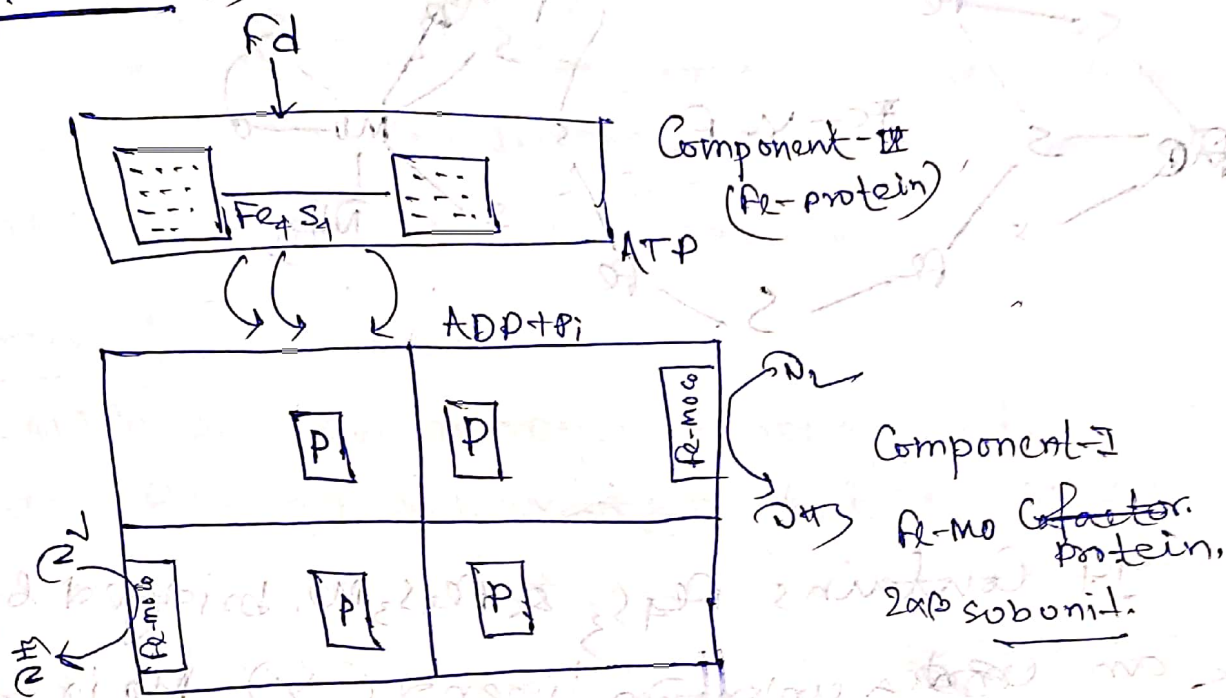 Fd
Component-II
(Fe-protein)
Fe4 S4
ATP
ADP+Pi
P
P
Fe-moco
N2
NH3
Component-I
Fe-Mo Cofactor.
protein.
2αβ subunit.
N2
Fe-moco
NH3
P
P